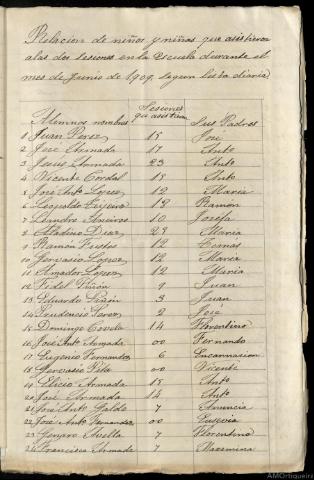 Relacion de niños y niñas que asistieron
a las dos sesiones en la Escuela durante el
mes de Junio de 1909, segun lista diaria.
Alumnos nombres Sesiones que asistieron Sus Padres
1 Juan Perez 15 José
2 José Armada 17 Anto
3 Jesús Armada 23 Anto
4 Vicente Cordal 15 Anto
5 José Anto Lopez 12 Maria
6 Leopoldo Teijeiro 18 Ramón
7 Leandro 10 Josefa
8 Diaz 23 Maria
9 Ramón 12 Tomas
10 Gervasio Lopez 12 Maria
11 Amador Lopez 12 Maria
12 Fidel Piñón 9 Juan
13 Eduardo Piñón 3 Juan
14 Prudencio Perez 2 José
15 Domingo Covelo 14 Florentino
16 José Anto Armada 00 Fernando
17 Eugenio Fernandez 6 Encarnacion
18 Gervasio Vila 00 Vicente
19 Elicio Armada 15 Anto
20 José Armada 14 Anto
21 José Anto Galdo 7
22 José Anto Fernandez 00 Eusevia
23 Genaro 7 Florentino
24 Francisca Armada 7 Maximina
(c) AMOrtigueira